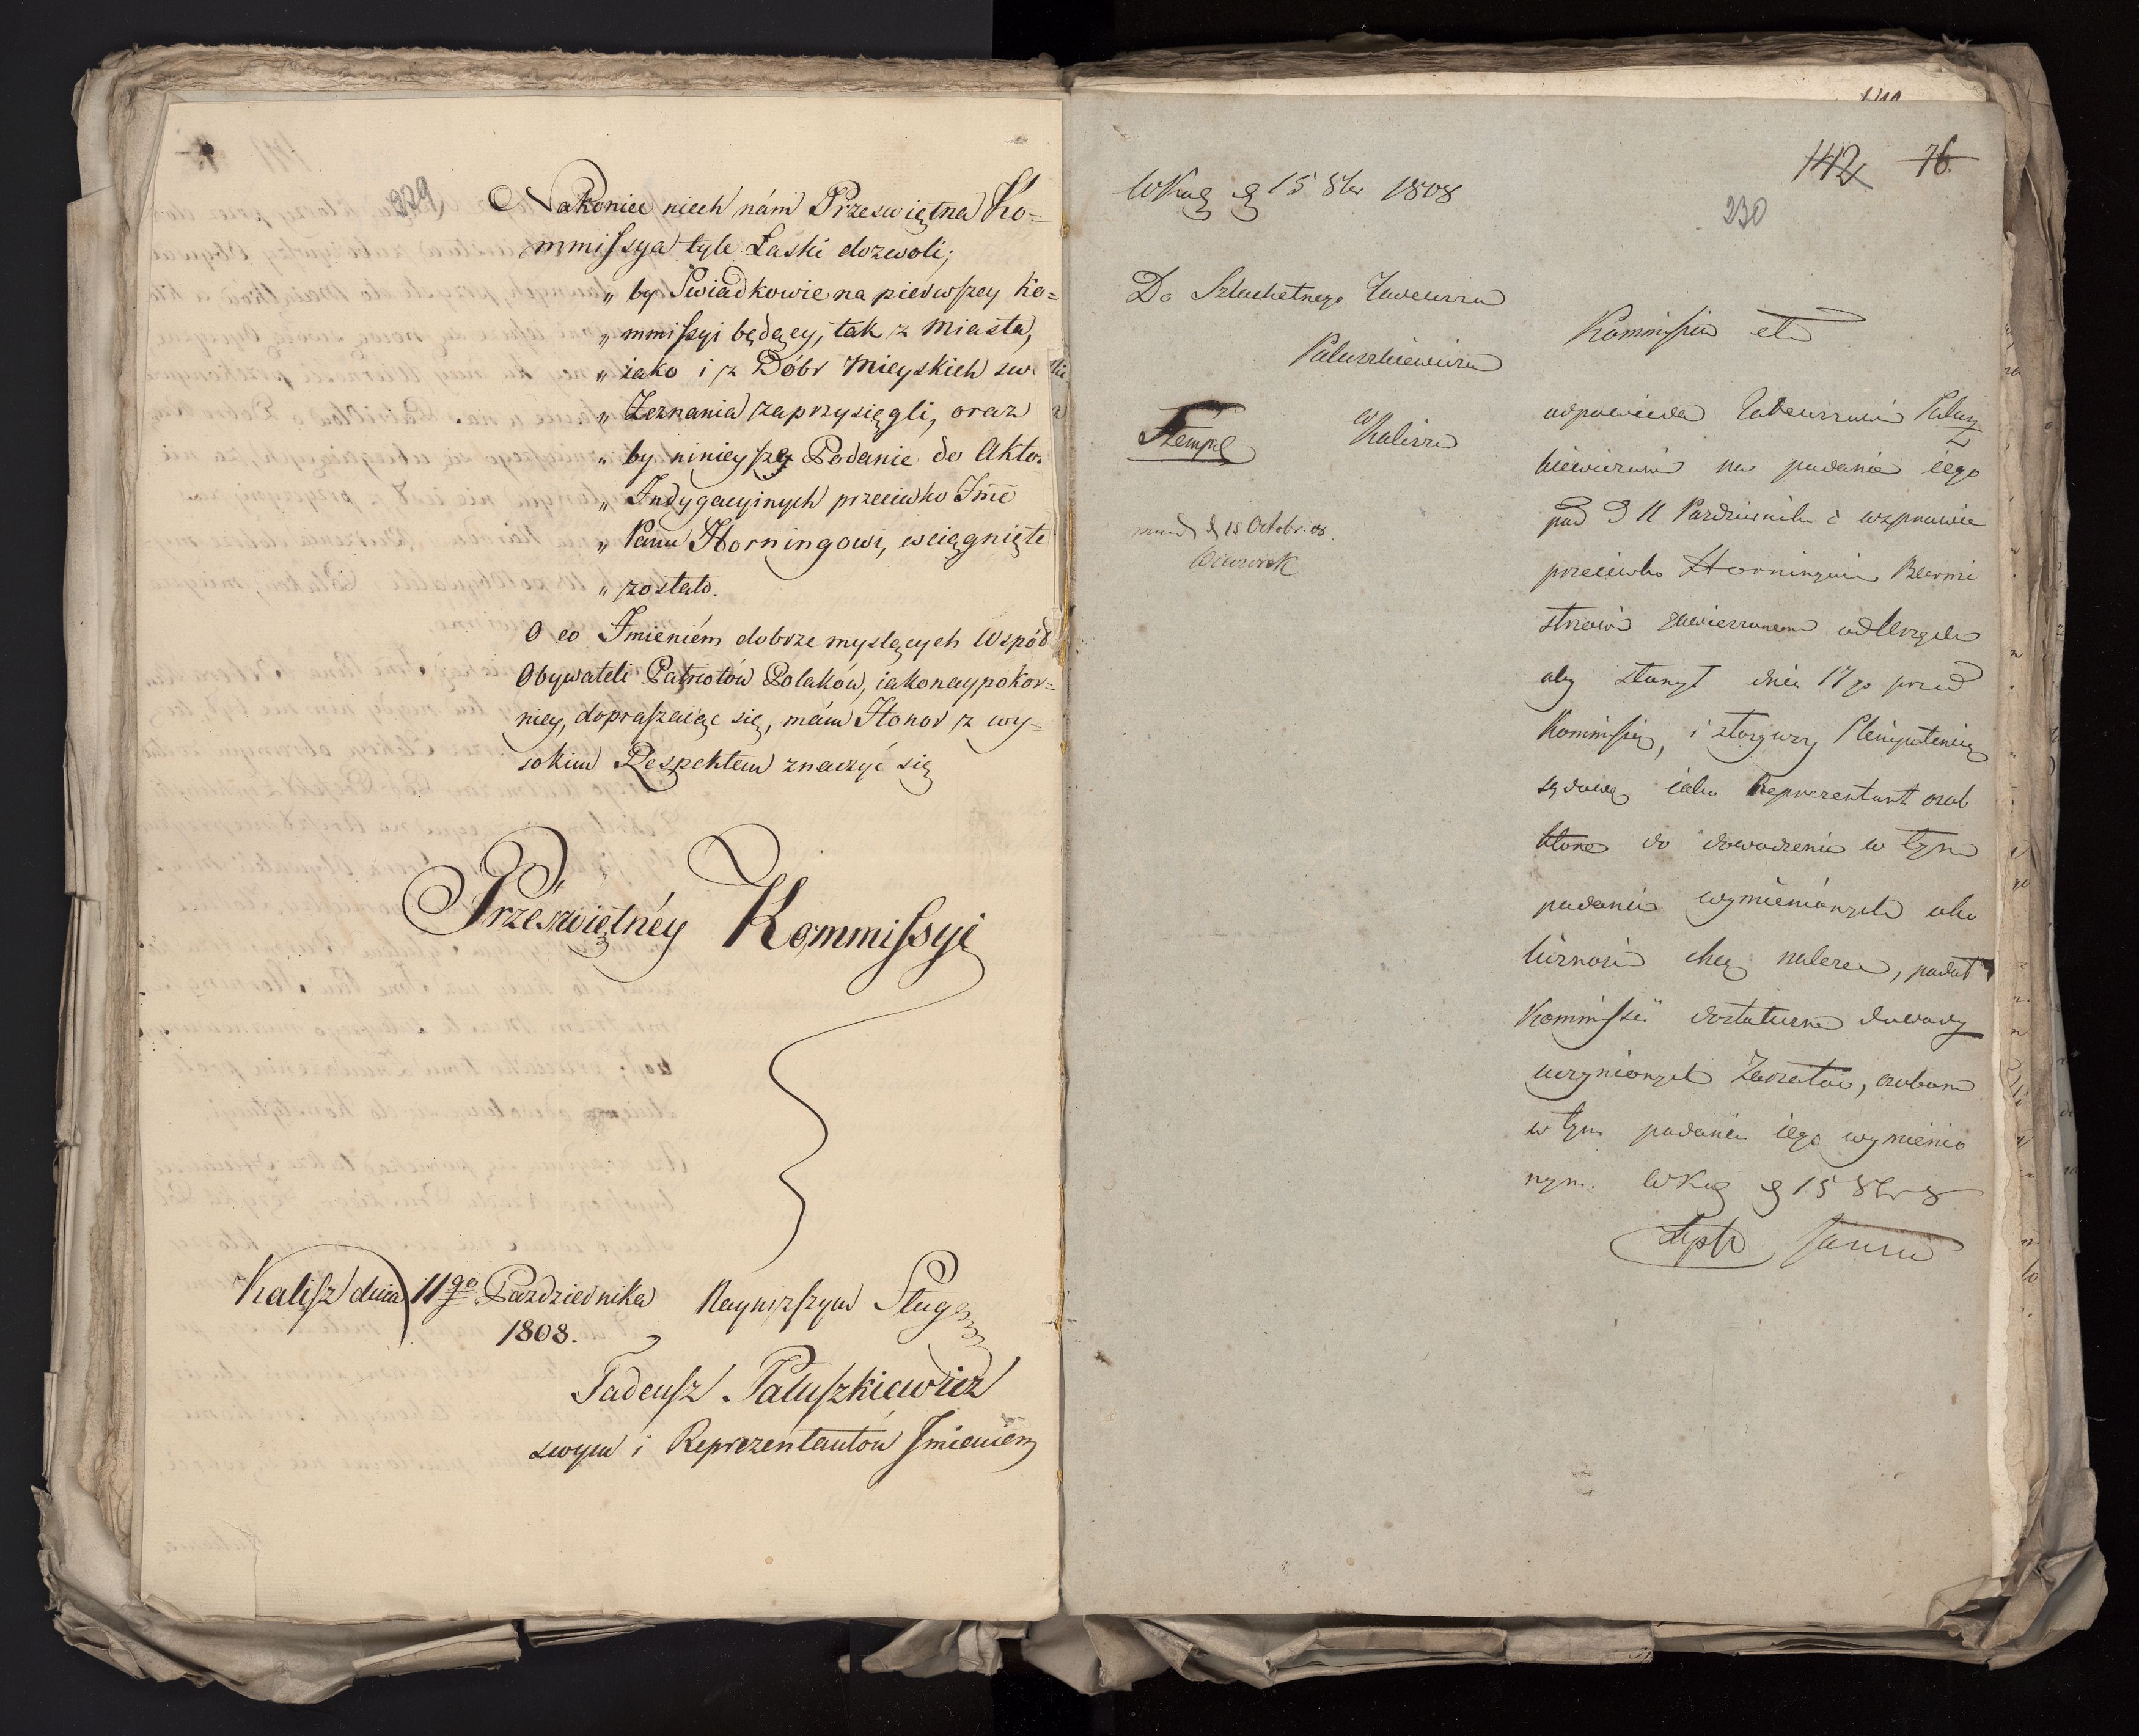 229
Nakoniec niech nám Przeświętna Ko=
mmissya tyle Łaski dozwoli;
„ by Swiadkowie na pierwszey Ko=
„ mmissyi będący, tak z Miasta,
„ iako i z Dóbr Mieyskich swe
„ Zeznania zaprzysięgli, oraz
„ by ninieysze Podanie do Aktow
„ Indygacyinych przeciwko Jmć
„ Panu Horningowi, wciągnięte
„ zostało.
O co Imieniém dobrze myslących Współ
Obywateli Patriotów Polaków, iak onaypokor=
niey, dopraszaiąc się, mám Honor z wy=
sokim Respektem znaczyć się
Przeświętnéy Kommissyi
Kalisz dnia 11go Października
1808.
Nayniższym Sługą
Tadeusz Paluszkiewicz
swym i Reprezentantów Imieniem
142 76.
230
W Kal. d 15 8br 1808
Do Szlachetnego Tadeusza
Paluszkiewicza
w Kaliszu
Stempel
mund d 15 Octobr. 08.
Kommissia etc
odpowieda Tadeuszowi Palusz
kiewiczowi na podanie iego
pod d 11 Października c w sprawie
przeciwko Horningowi Burmi
strzowi
aby stanął dnia 17go przed
Kommissią, i złożywszy Plenipotencią
sądową iako Reprezentant osob
które do dowodzenia w tym
podaniu wymienionych oko
liczności chcą należeć, podał
Kommissii dostateczne dowody
uczynionych Zarzutów, osobom
w tym podaniu iego wymienio
nym. W Kal d 15 8br 8